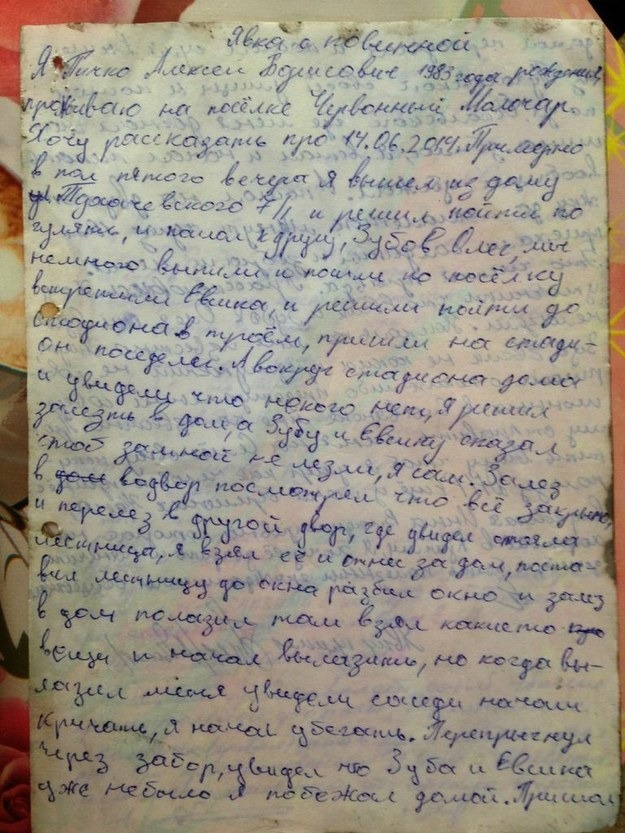 Явка с повинной
Я Тичко Алексей Борисович 1983 года рождения,
проживаю на посёлке Червонный Маячар
Хочу рассказать про 14.06.2014. Примерно
в пол пятого вечера я вышел из дому
ул. 7/1 и решил пойти по
гулять, и попал к другу, Зубов Олег, мы
немного выпили и пошли по посёлку
встретили Евсика, и решили пойти до
стадиона в троём, пришли на стади-
он поседели. А вокруг стадиона дома
и увидели что некого нет, я решил
залезть в дом, а Зубу и Евсику сказал
чтоб замной не лезли, я сам. Залез
в дом водвор посмотрел что всё закрыто,
и перелез в другой двор, где увидел стояла
лестьница, я взял её и отнес за дом, поста
вил лестьницу до окна разбил окно и залез
в дом полазил там взял какието
вещи и начал вылазить, но когда вы-
лазил меня увидели соседи начали
кричать, я начал убегать. Перепрыгнул
через забор, увидел что Зуба и Евсика
уже небыло я побежал домой. Пришол